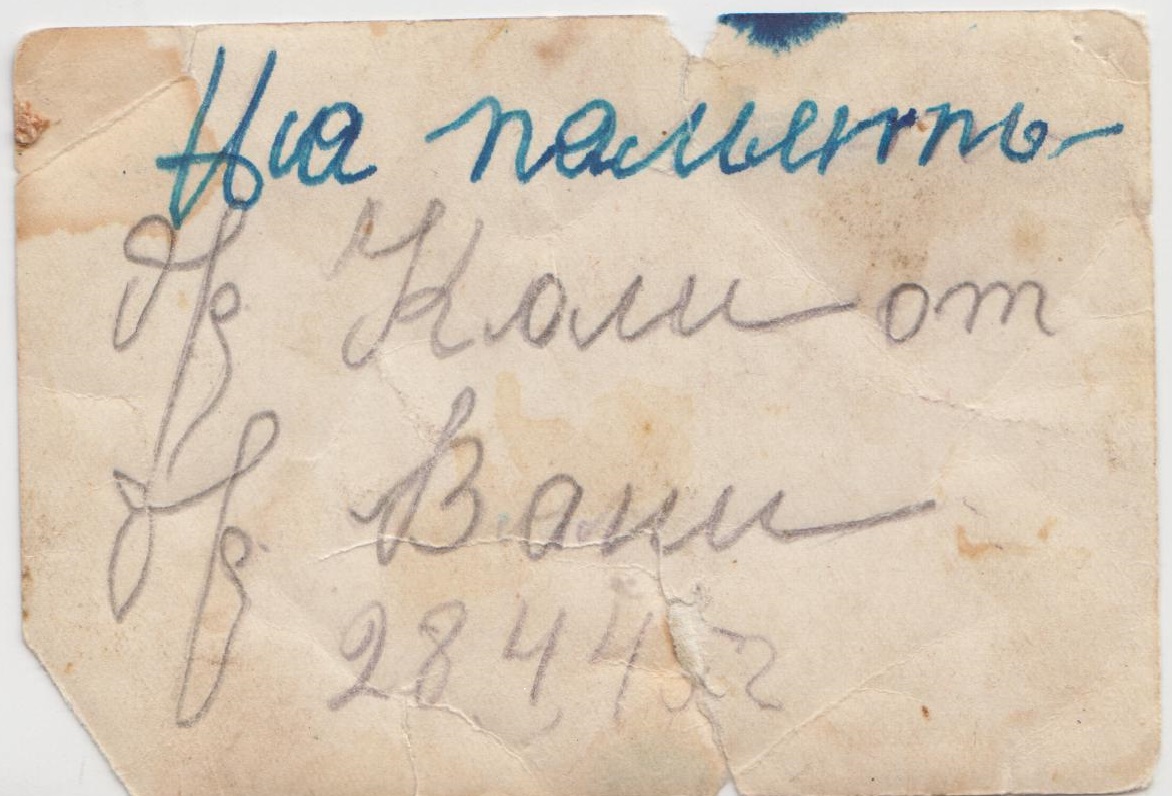 На память
др Коли от
др Вани
28 4 4 г